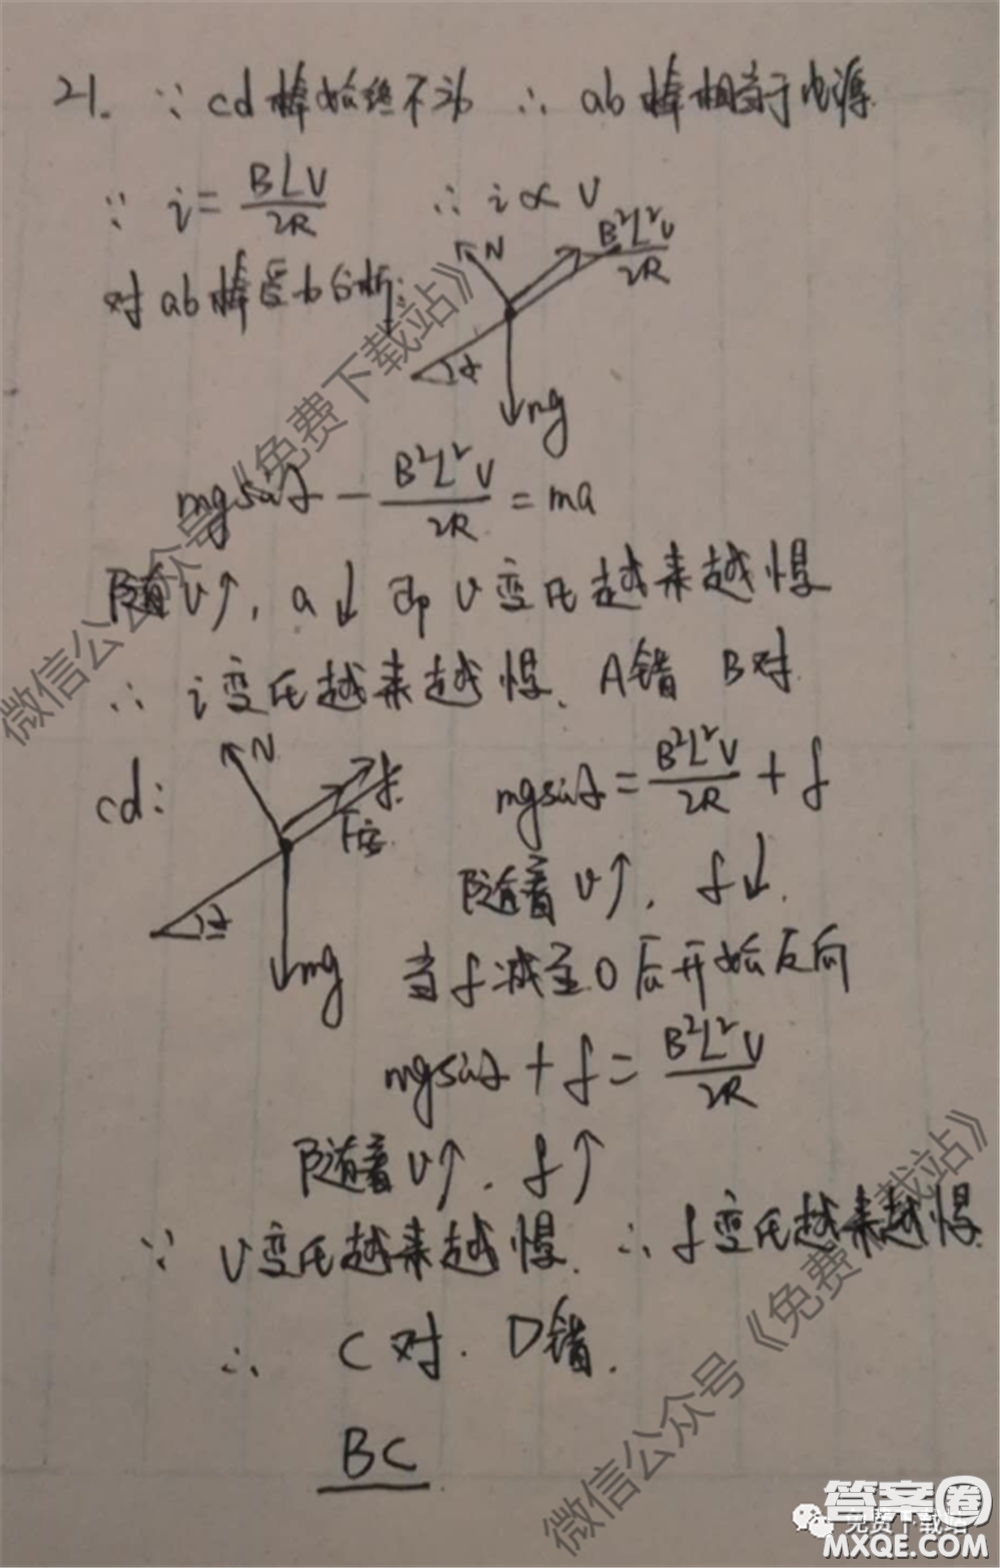 21. ∵ cd棒始终不动 ∴ ab棒相当于电源.
∵ i = BLV/2R ∴ i ∝ V
对ab棒受力分析:
N
B²L²V/2R
α
mg
mgsinα − B²L²V/2R = ma
随V↑, a↓ 即V变化越来越慢
∴ i变化越来越慢. A错 B对.
cd:
N
f.
F安.
α
mg
mgsinα = B²L²V/2R + f
随着V↑, f↓.
当f减至0后开始反向
mgsinα + f = B²L²V/2R
随着V↑. f↑
∵ V变化越来越慢. ∴ f变化越来越慢
∴ C对. D错.
BC
微信公众号《免费下载站》
微信公众号《免费下载站》
答案圈
免费下载站
MXQE.COM